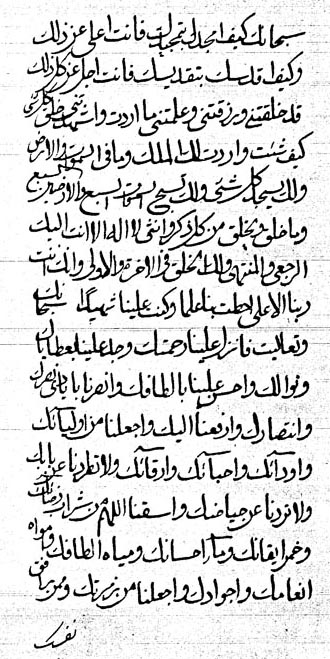 سبحانك كيف امجدك بتمجيدك فانت اعلی عن ذلك
وكيف اقدسك بتقديسك فانت اجل عن كل ذلك
قد خلقتني ورزقتني وعلمتني ما اردت
كيف شئت واردت لك الملك وما في السموات والارض
ولك يسبح كل شئ ولك يسبح السموات السبع والارضين السبع
وما خلق ويخلق من كل ذكر وانثی لا اله الا انت اليك
الرجعی والمنتهی ولك الخلق في الاخرة والاولی وانك انت
ربنا الاعلی احطت بنا علما وكنت علينا شهيدا سبحانك
وتعاليت فانزل علينا رحمتك وجد علينا بعطائك
ونوالك واحسن علينا بالطافك وانصرنا
وانتصارك وارفعنا اليك واجعلنا من اوليائك
واودائك واحبائك وارقائك ولا تطردنا عن بابك
ولا تردنا عن حياضك واسقنا اللهم من شراب
وخمر ايقانك وماء احسانك ومياه الطافك ومواه
انعامك واجوادك واجعلنا من بريتك ومن
نفسك